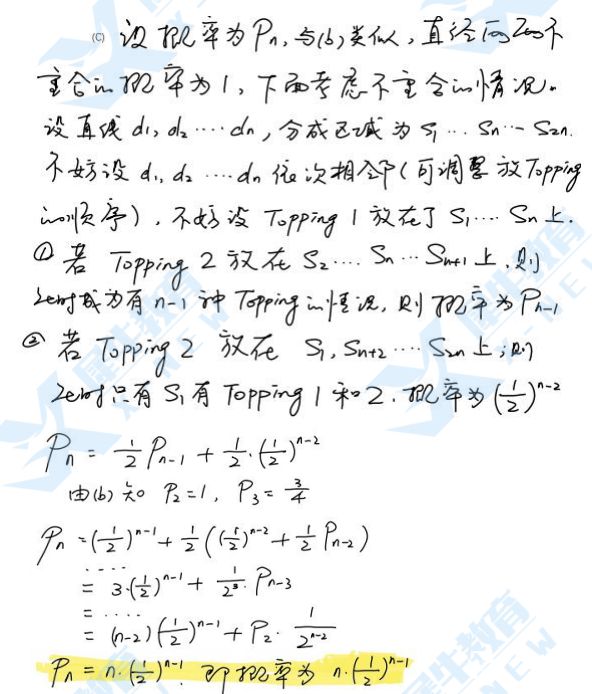 (C) 设概率为Pn, 与(b)类似, 直径间两两不
重合的概率为1, 下面考虑不重合的情况.
设直线 d1, d2 ⋯⋯ dn, 分成区域为 S1 ⋯ Sn ⋯ S2n.
不妨设 d1, d2 ⋯⋯ dn 依次相邻(可调整放Topping
的顺序), 不妨设 Topping 1 放在了 S1 ⋯⋯ Sn 上.
① 若 Topping 2 放在 S2 ⋯⋯ Sn ⋯ Sn+1 上, 则
此时成为有 n-1 种 Topping 的情况, 则概率为 Pn-1
② 若 Topping 2 放在 S1, Sn+2 ⋯⋯ S2n 上, 则
此时只有 S1 有 Topping 1 和 2. 概率为 (1/2)^{n-2}
Pn = 1/2 Pn-1 + 1/2 · (1/2)^{n-2}
由(b)知 P2 = 1, P3 = 3/4
Pn = (1/2)^{n-1} + 1/2 ((1/2)^{n-2} + 1/2 Pn-2)
⋯⋯
= 3·(1/2)^{n-1} + 1/2^3 · Pn-3
= ⋯⋯
= (n-2)(1/2)^{n-1} + P2 · 1/2^{n-2}
Pn = n·(1/2)^{n-1}. 即概率为 n·(1/2)^{n-1}
犀牛教育
X-NEW